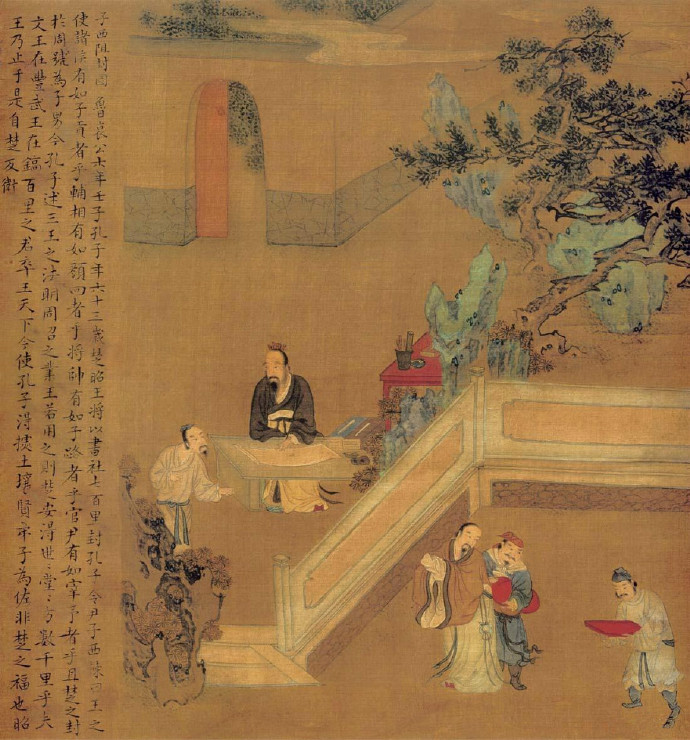 子西阻封圖 魯哀公六年壬子孔子年六十三歲楚昭王將以書社七百里封孔子令尹子西諫曰王之
使諸侯有如子貢者乎輔相有如顏回者乎將帥有如子路者乎官尹有如宰予者乎且楚之封
於周號為子男今孔子述三王之法明周召之業王若用之則楚安得世〻堂〻方數千里乎夫
文王在豐武王在鎬百里之君卒王天下今使孔子得據土壤賢弟子為佐非楚之福也昭
王乃止于是自楚反衛